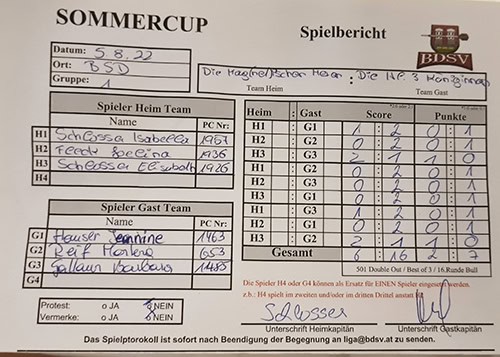 SOMMERCUP
Spielbericht
BDSV
Datum: 5.8.22
Ort: BSD
Gruppe: 1
: Die
3
Team Heim Team Gast
Spieler Heim Team
Name PC Nr:
H1 Schlosser Isabella 1957
H2 1936
H3 Schlosser Elisabeth 1926
H4
Spieler Gast Team
Name PC Nr:
G1 Hauser Jeannine 1463
G2 Reif Marlena
G3 Barbara
G4
Heim : Gast Score Punkte
H1 : G1 1 : 2 0 : 1
H2 : G2 0 : 2 0 : 1
H3 : G3 2 : 1 1 : 0
H2 : G1 0 : 2 0 : 1
H3 : G2 0 : 2 0 : 1
H1 : G3 0 : 2 0 : 1
H3 : G1 1 : 2 0 : 1
H1 : G2 0 : 2 0 : 1
H2 : G3 2 : 1 1 : 0
Gesamt 6 : 16 2 : 7
501 Double Out / Best of 3 / 16.Runde Bull
Die Spieler H4 oder G4 können als Ersatz für EINEN Spieler eingesetzt werden.
z.b.: H4 spielt im zweiten und/oder im dritten Drittel anstatt
Protest: o JA NEIN
Vermerke: o JA NEIN
Schlosser
Unterschrift Heimkapitän Unterschrift Gastkapitän
Das Spielprotokoll ist sofort nach Beendigung der Begegnung an liga@bdsv.at zu senden.